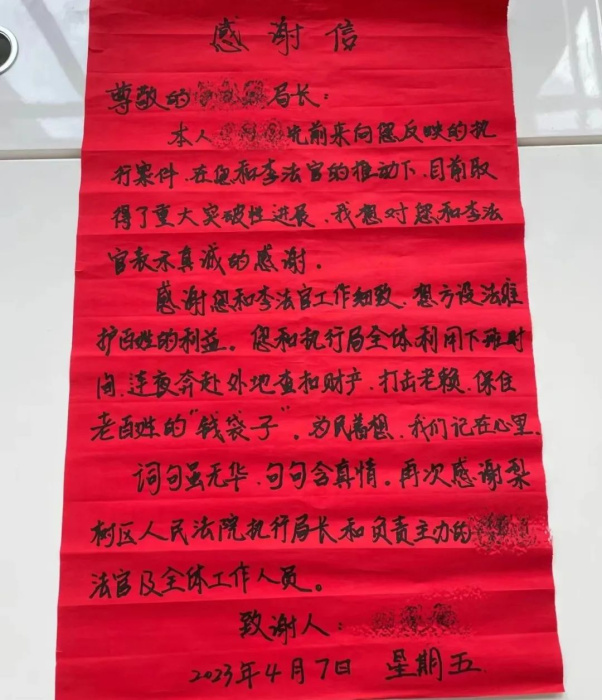 感谢信
尊敬的 局长：
本人 先前来向您反映的执
行案件，在您和李法官的推动下，目前取
得了重大突破性进展，我想对您和李法
官表示真诚的感谢。
感谢您和李法官工作细致，想方设法维
护百姓的利益。您和执行局全体利用下班时
间，连夜奔赴外地查扣财产，打击老赖，保住
老百姓的“钱袋子”。为民着想，我们记在心里。
词句虽无华，句句含真情。再次感谢梨
树区人民法院执行局长和负责主办的
法官及全体工作人员。
致谢人：
2023年4月7日 星期五